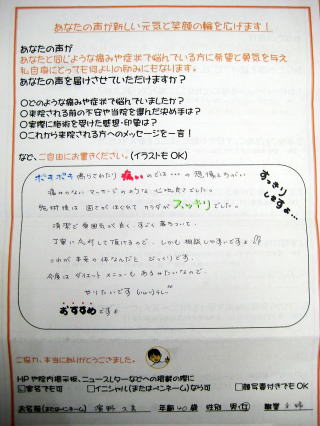 あなたの声が新しい元気と笑顔の輪を広げます！
あなたの声が
あなたと同じような痛みや症状で悩んでいる方に希望と勇気を与え
私自身にとっても何よりの励みにもなります。
あなたの声を届けさせて頂けますか？
○どのような痛みや症状で悩んでいましたか？
○来院される前の不安や当院を選んだ決め手は？
○実際に施術を受けた感想・印象は？
○これから来院される方へのメッセージを一言！
など、ご自由にお書きください。（イラストもOK）
ボキボキ 鳴らされたり 痛いのでは・・・の想像とちがい
痛みのないマッサージのような 心地良さでした。
施術後は 固さがほぐれて カラダがスッキリでした。
清潔で 雰囲気が良く、すごく落ちついて、
丁寧に応対して頂けるので、しつも 相談しやすいですよ
これが本来の体なんだと びっくりです。
今度は ダイエットメニューもあるみたいなので、
やりたいです
おすすめですよ
すっきりしますよ…
ご協力、本当にありがとうございました。
HPや院内掲示板、ニュースレターなどへの掲載の際に
実名でも可 □イニシャル（またはペンネーム）なら可 □顔写真付きでもOK
お名前（またはペンネーム） 年齢 40歳 性別 男・女 職業 主婦